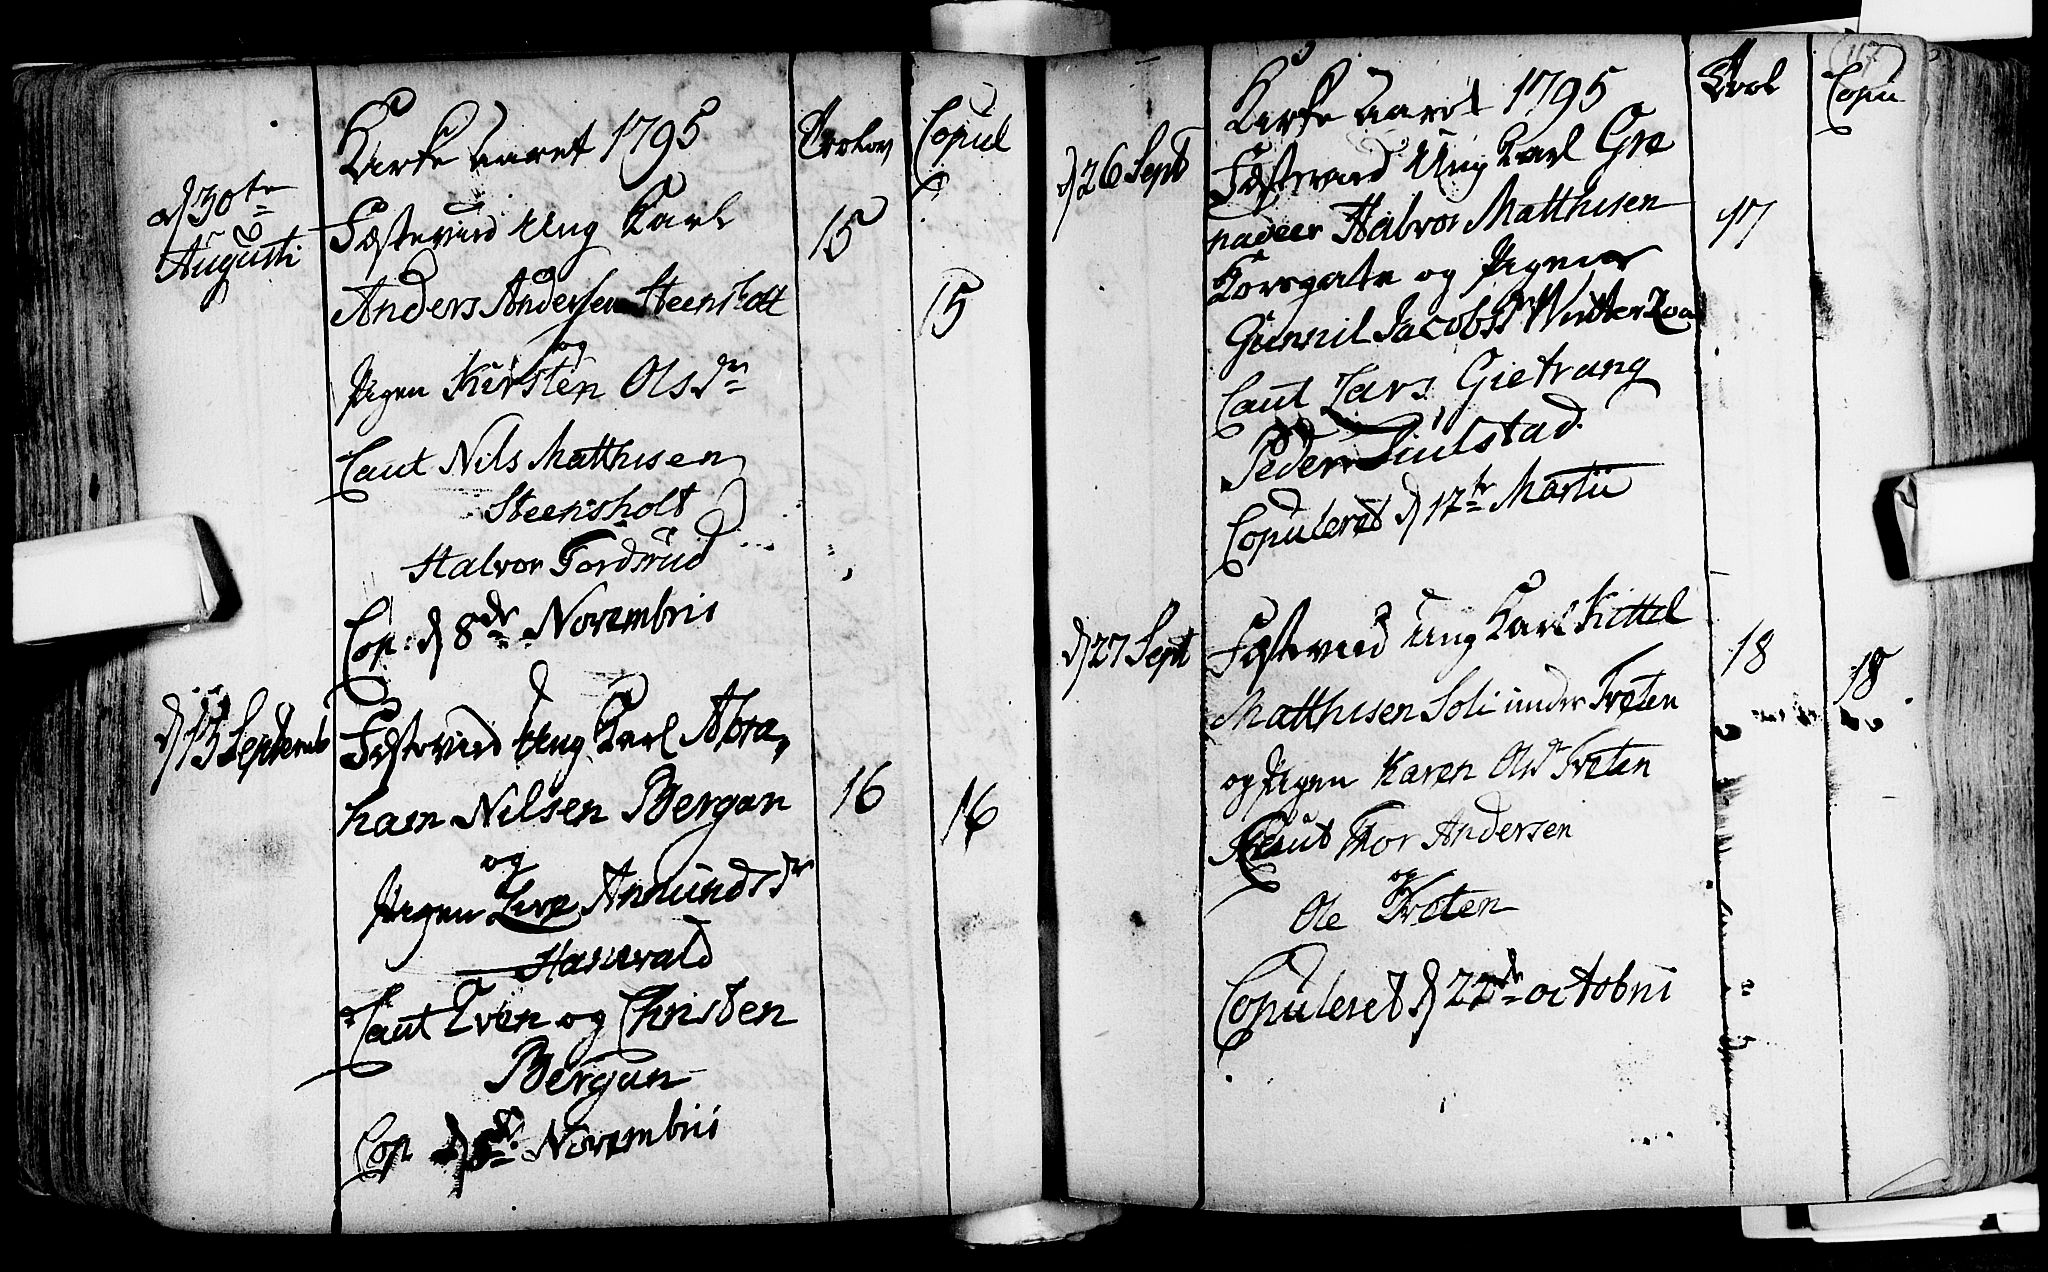 Kirke aaret 1795
Trolov
Copul
d 30te
Augusti
Fæstevied Ung Karl
15
Anders Andersen Steensholt
15
og
Pigen Kirsten Olsdr
Caut Nils Matthisen
Steensholt
Halvor Tordsrud
Cop: d 8de Novembris
d 13 Septemb
Fæstevied Ung Karl Abra,
ham Nilsen Bergan
16
16
og
Pigen Live Anundsdr
Hanevald
Caut Even og Christen
Bergan
Cop d 8de Novembris
117
Kirke aaret 1795
Trol
Copu
d 26 Sept
Fæstevied Ung Karl Gre
nadeer Halvor Matthisen
17
Korsgate og Pigen
Gunnil Jacobsdr
Caut Lars Gietrang
Peder Sulstad
Copuleret d 17te Martii
d 27 Sept
Fæstevied Ung Karl Kittil
18
18
Matthisen Soli under Træten
og Pigen Karen Olsdr Træten
Caut Thor Andersen
og
Ole Træten
Copuleret d 22de octobris